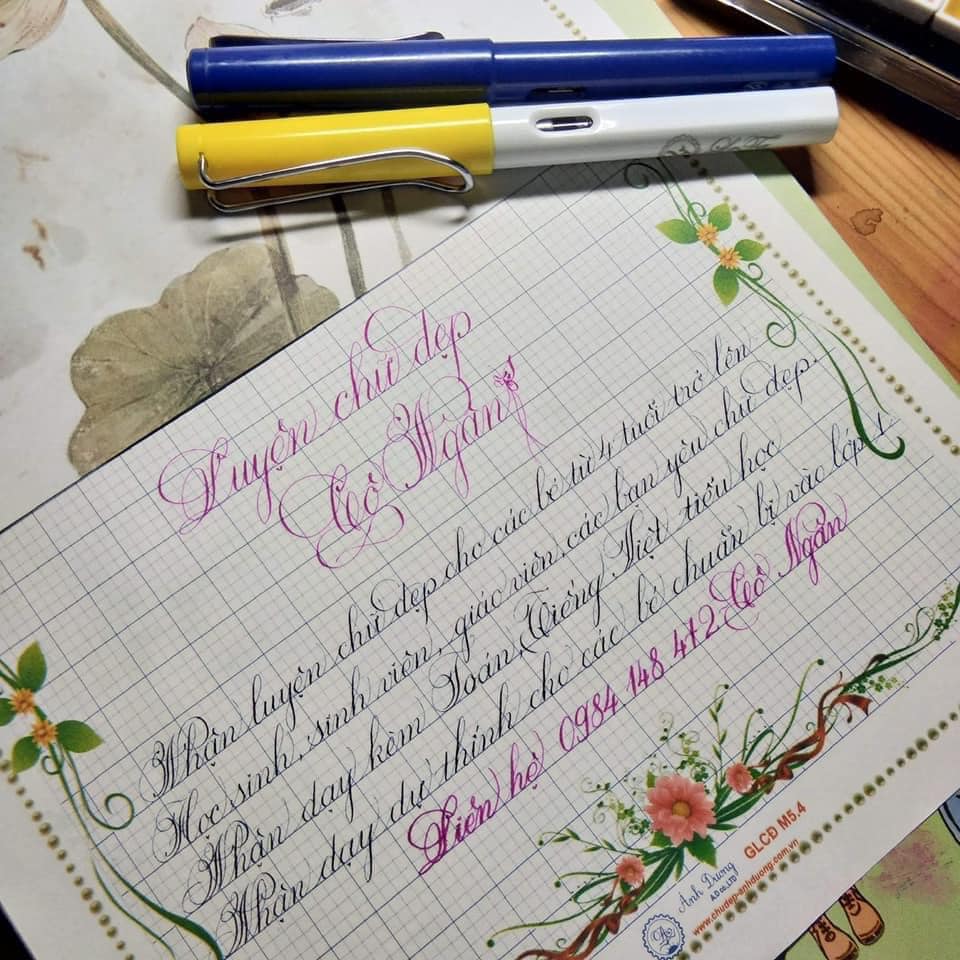 Luyện chữ đẹp
Cô Ngân
Nhận luyện chữ đẹp cho các bé từ 4 tuổi trở lên
Học sinh, sinh viên, giáo viên, các bạn yêu chữ đẹp.
Nhận dạy kèm Toán, Tiếng Việt tiểu học
Nhận dạy dự thính cho các bé chuẩn bị vào lớp 1
Liên hệ 0984 148 472 Cô Ngân
Anh Dương
AD CO.,LTD
GLCĐ M5.4
www.chudep-anhduong.com.vn